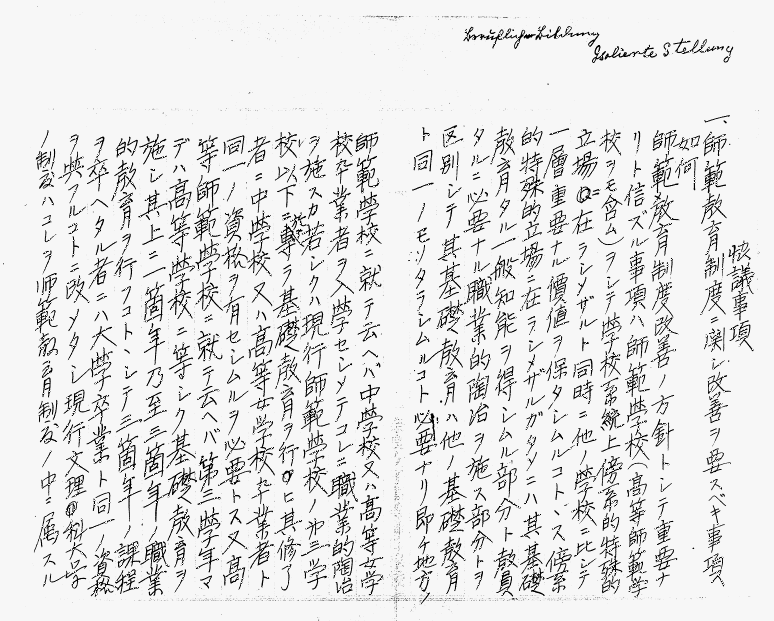 Berufliche Bildung
Isolierte Stellung
決議事項
一、師範教育制度ニ関シ改善ヲ要スベキ事項
如何
師範教育制度改善ノ方針トシテ重要ナ
リト信ズル事項ハ師範學校(高等師範学
校ヲモ含ム)ヲシテ学校系統上傍系的特殊的
立場ニ在ラシメザルト同時ニ他ノ學校ニ比シテ
一層重要ナル價値ヲ保タシムルコトトス傍系
的特殊的立場ニ在ラシメザルガタメニハ其基礎
教育タル一般知能ヲ得シムル部分ト教員
タルニ必要ナル職業的陶冶ヲ施ス部分トヲ
区別シテ其基礎教育ハ他ノ基礎教育
ト同一ノモノタラシムルコト必要ナリ即チ地方ノ
師範學校ニ就テ云ヘバ中學校又ハ高等女学
校卒業者ヲ入學セシメテコレニ職業的陶冶
ヲ施スカ若シクハ現行師範學校ノ第三学
校以下ニ専ラ基礎教育ヲ行ヒ其修了
者ニ中学校又ハ高等女学校卒業者ト
同一ノ資格ヲ有セシムルヲ必要トス又高
等師範学校ニ就テ云ヘバ第三學年マ
デハ高等學校ニ等シク基礎教育ヲ
施シ其上ニ一箇年乃至三箇年ノ職業
的教育ヲ行フコトトシテ三箇年ノ課程
ヲ卒ヘタル者ニハ大學卒業ト同一ノ資格
ヲ與フルコトニ改メタシ現行文理科大学
ノ制度ハコレヲ師範教育制度ノ中ニ属スル